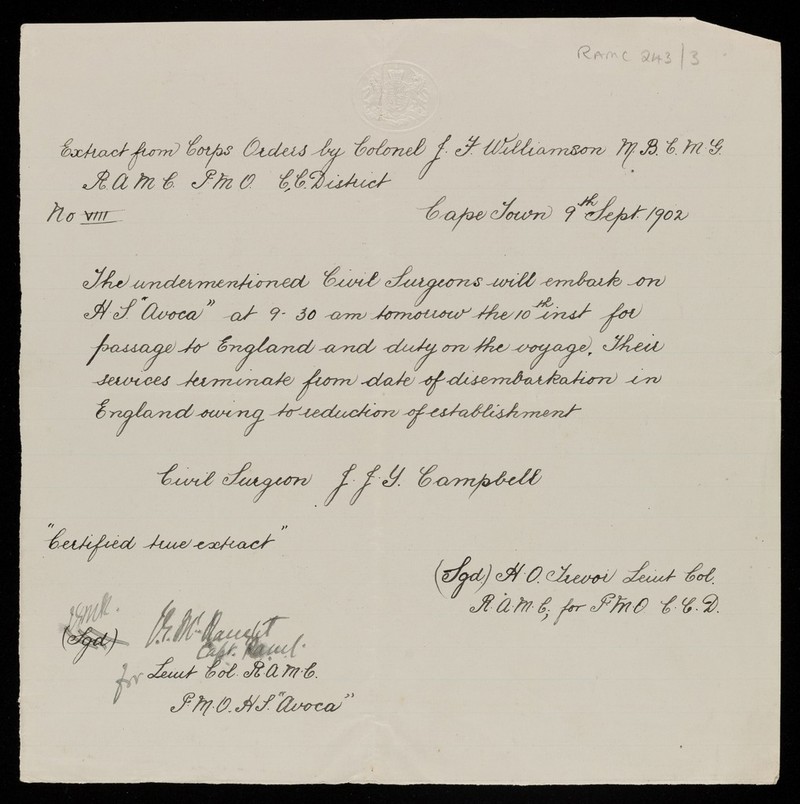 RAMC 243/3
Extract from Corps Orders by Colonel J. F. Williamson M.B. C.M.G.
R.A.M.C. P.M.O. C.C. District
No VIII
Cape Town 9th Sept. 1902
The undermentioned Civil Surgeons will embark on
H.S. "Avoca" at 9-30 am tomorrow the 10th inst for
passage to England and duty on the voyage. Their
services terminate from date of disembarkation in
England owing to reduction of establishment
Civil Surgeon J. J. Y. Campbell
"Certified true extract"
(Sgd) H. O. Trevor Leiut Col.
R.A.M.C, for P.M.O. C.C.D.
(Sgd)
Capt. Ramc.
for Leiut Col. R.A.M.C.
P.M.O. H.S. "Avoca"